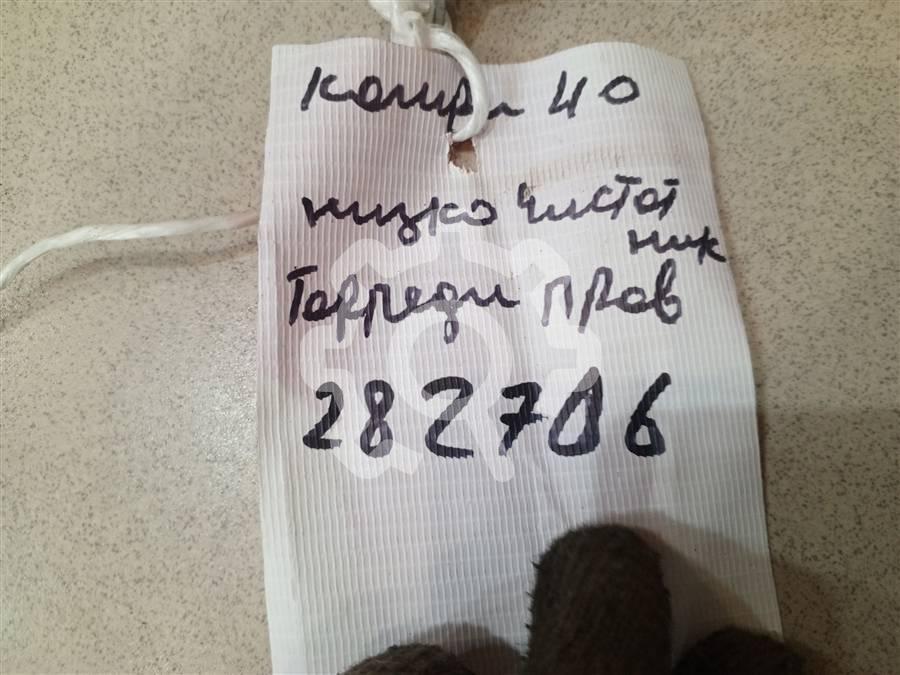 Камри 40
низко частот
ник
Торпеди прав
282706